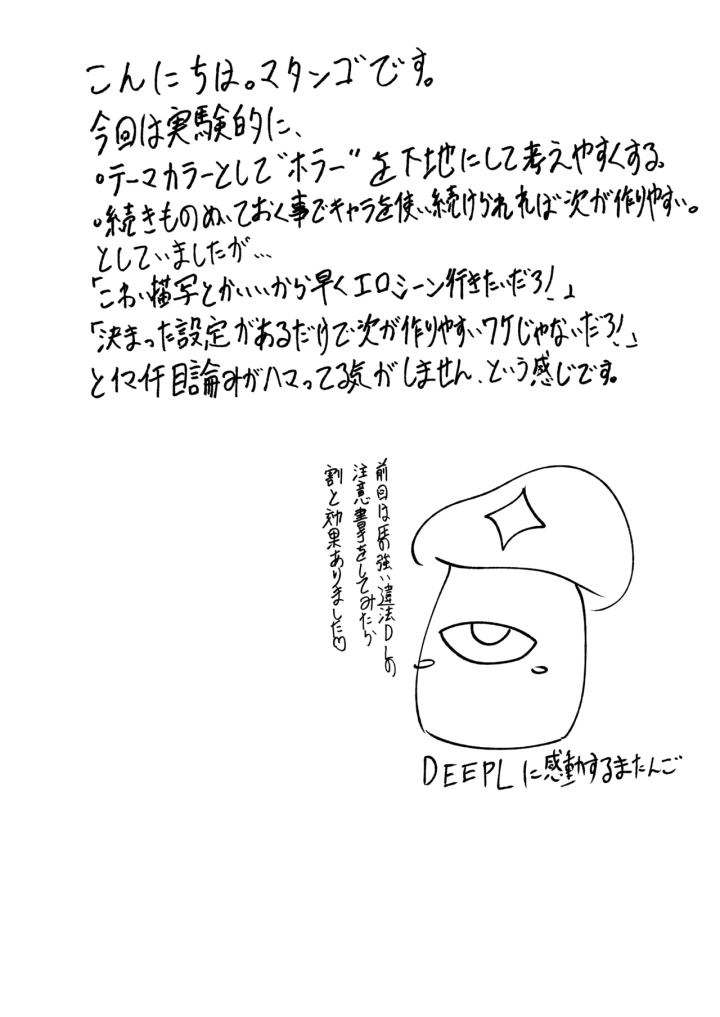 こんにちは。マタンゴです。
今回は実験的に、
•テーマカラーとして"ホラー"を下地にして考えやすくする。
•続きものぬいておく事でキャラを使い続けられれば次が作りやすい。
としていましたが…
「こわい描写とかいいから早くエロシーン行きたいだろ!」
「決まった設定があるだけで次が作りやすいワケじゃないだろ!」
とイマイチ目論みがハマってる気がしません、という感じです。
前回は圧の強い違法DLの
注意書きをしてみたら
割と効果ありました♡
DEEPLに感動するまたんご